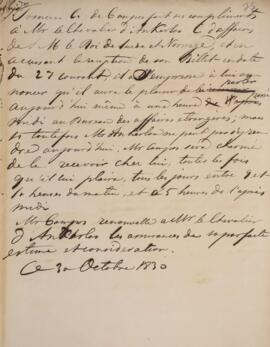 C. de Campos fait ses compliments
à Mr le Chevalier d'Ankarloo C. d'affaires
de S. M. le Roi de Suede et Norvege, et en
accusant la reception de son Billet en date
du 27 courant, il s'empresse à lui an-
noncer qu'il aura le plaisir de le
aujourd'hui même à une heure
midi au Bureau des affaires etrangeres; mais
si toutefois Mr Ankarloo ne peut pas s'y ren-
dre aujourd'hui. Mr Campos sera charmé
de le recevoir chez lui, toutes les fois
que il lui plaira, tous les jours entre 9 et
10 heures du matin, et à 5 heures de l'après
midi
Mr Campos renouvelle à Mr le Chevalier
d'Ankarloo les assurances de sa parfaite
estime et consideration.
Ce 30 Octobre 1830